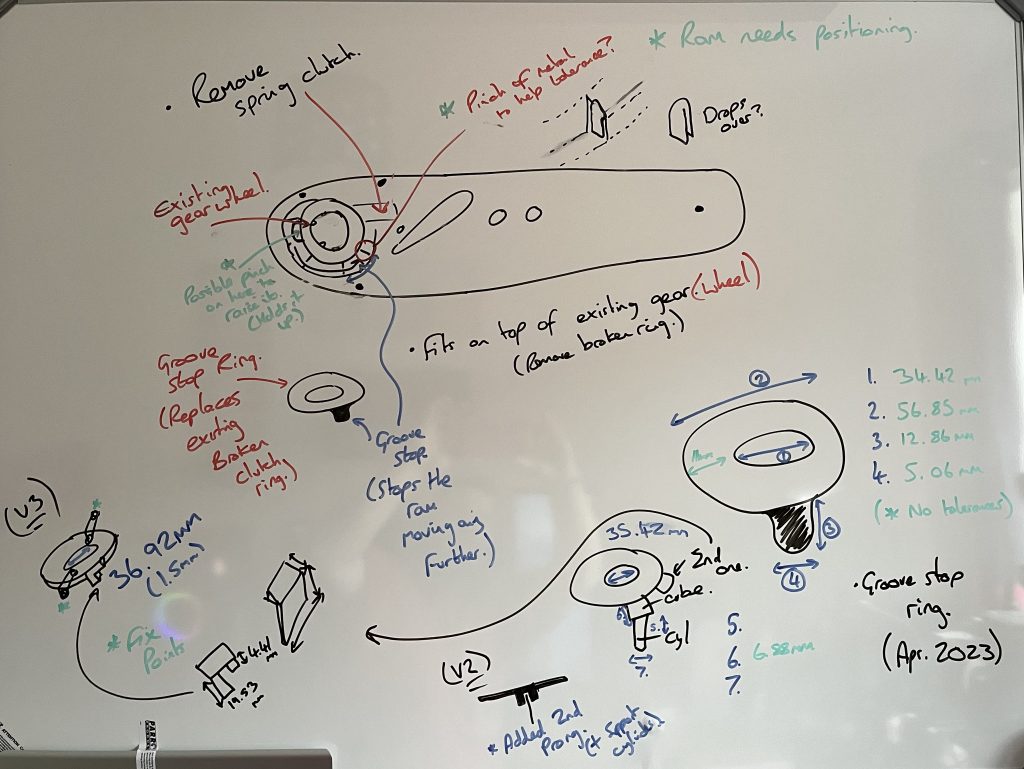 * Ram needs positioning.
• Remove
spring clutch.
* Pinch of metal
to help tolerance?
Drops
over?
Existing
gear wheel.
*
Possible pinch
on here to
raise it.
(Holds it
up.)
• Fits on top of existing gear (wheel)
(Remove broken ring.)
Groove
Stop Ring.
(Replaces
existing
Broken
clutch
ring.)
Groove
stop
(Stops the
ram
moving any
further.)
2
1
3
4
1. 34.42 mm
2. 56.85 mm
3. 12.86 mm
4. 5.06 mm
(* No tolerances)
• Groove stop
ring.
(Apr. 2023)
(V3)
*
*
36.92mm
(1.5mm)
* Fix
Points
4.41
m
19.53
m
35.42mm
2nd
one.
Cube.
Cyl
6.
5.
7.
5.
6. 6.88mm
7.
(V2)
* Added 2nd
Prong.